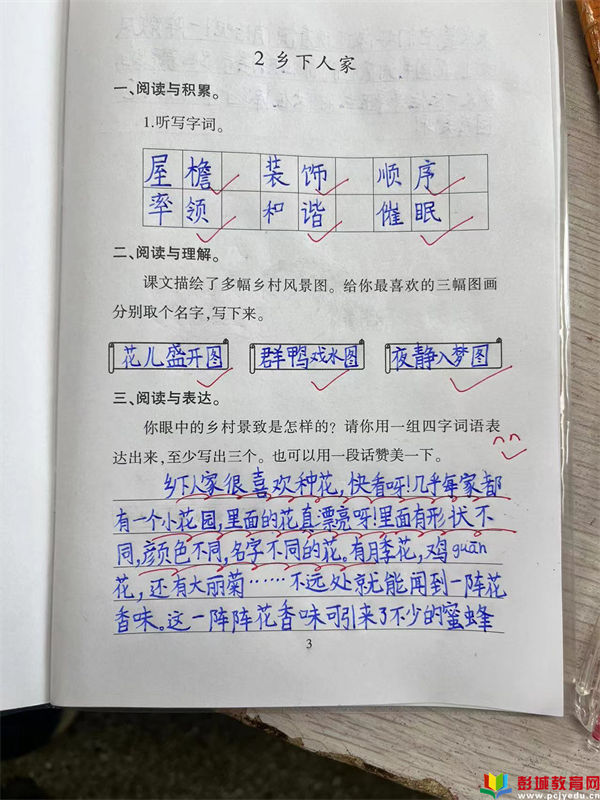 2 乡下人家
一、阅读与积累。
1.听写字词。
屋檐 装饰 顺序
率领 和谐 催眠
二、阅读与理解。
课文描绘了多幅乡村风景图。给你最喜欢的三幅图画
分别取个名字,写下来。
花儿盛开图 群鸭戏水图 夜静入梦图
三、阅读与表达。
你眼中的乡村景致是怎样的?请你用一组四字词语表
达出来,至少写出三个。也可以用一段话赞美一下。
乡下人家很喜欢种花,快看呀!几乎每家都
有一个小花园,里面的花真漂亮呀!里面有形状不
同,颜色不同,名字不同的花。有月季花,鸡guān
花,还有大丽菊……不远处就能闻到一阵花
香味。这一阵阵花香味可引来了不少的蜜蜂
3
彭城教育网
www.pcjyedu.cn